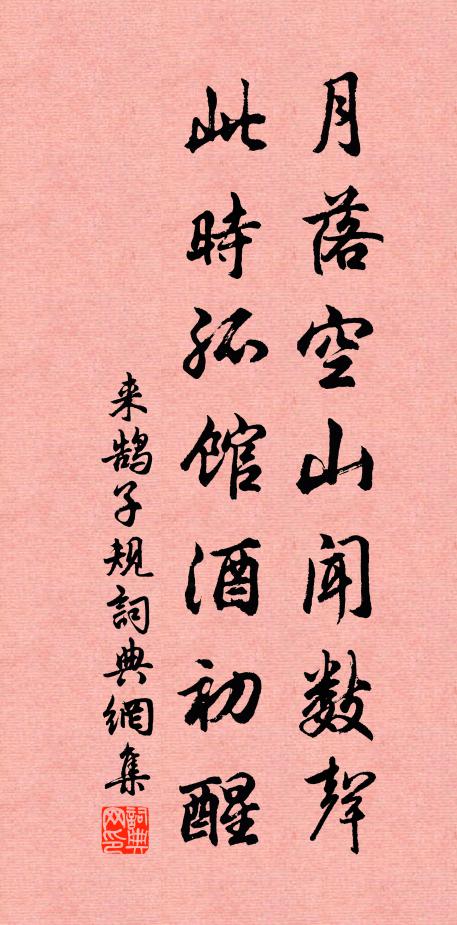 月落空山闻数聲
此時孤馆酒初醒
来鹄子规詞典網集
詞典网印